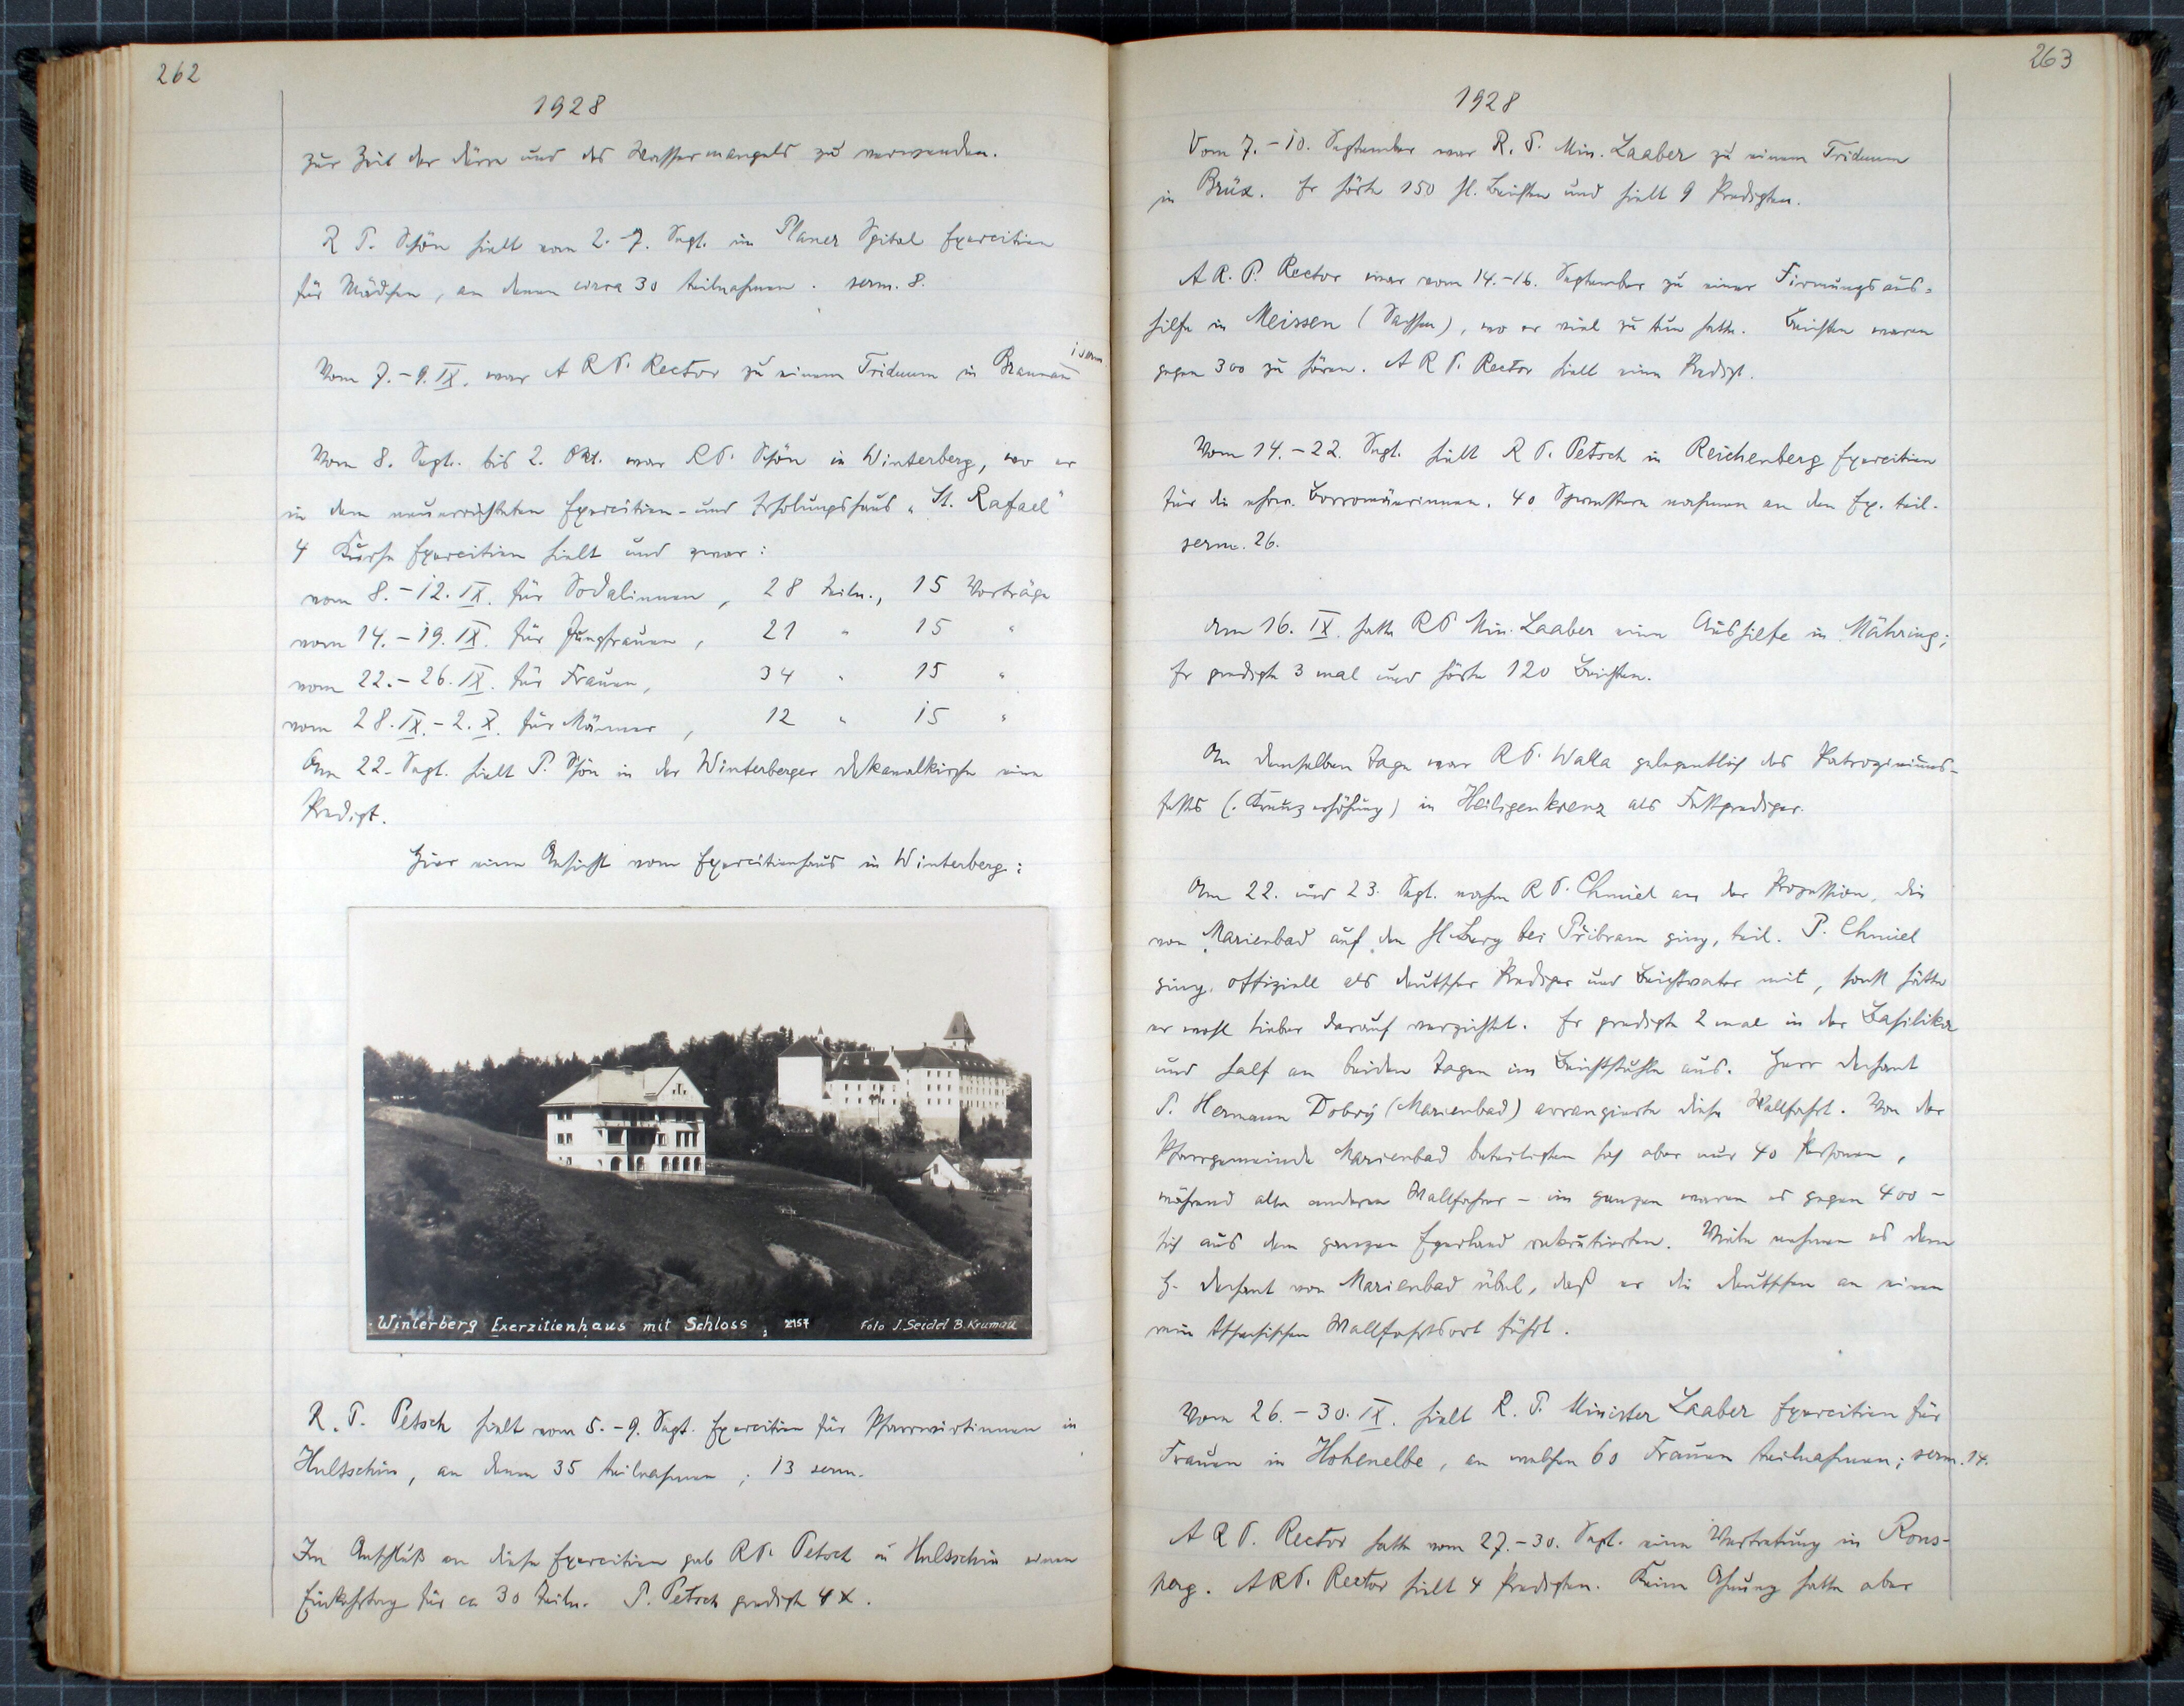 262
1928
zur Zeit der Dürre und des Wassermangels zu verwenden.
R. P. Schön hielt vom 2.-7. Sept. im Planer Spital Exercitien
für Mädchen, an denen circa 30 teilnahmen. serm. 8.
Vom 7.-9. IX. war A R P. Rector zu einem Triduum in Braunau
Vom 8. Sept. bis 2. Okt. war R P. Schön in Winterberg, wo er
in dem neuerrichteten Exercitien- und Erholungshaus „St. Rafael“
4 Kurse Exercitien hielt und zwar:
vom 8.-12. IX. für Sodalinnen, 28 Teiln., 15 Vorträge
vom 14.-19. IX. für Jungfrauen, 21 " 15 "
vom 22.-26. IX. für Frauen, 34 " 15 "
vom 28. IX.-2. X. für Männer, 12 " 15 "
Am 22. Sept. hielt P. Schön in der Winterberger Dekanalkirche eine
Predigt.
Hier eine Ansicht vom Exercitienhaus in Winterberg:
Winterberg Exerzitienhaus mit Schloss 2157 Foto J. Seidel B. Krumau
R. P. Petsch hielt vom 5.-9. Sept. Exercitien für Pfarrwirtinnen in
Hultschin, an denen 35 teilnahmen; 13 serm.
Im Anschluß an diese Exercitien gab R P. Petsch in Hultschin einen
Einkehrtag für ca 30 Teiln. P. Petsch predigte 4 x.
263
1928
Vom 7.-10. September war R. P. Min. Laaber zu einem Triduum
in Brüx. Er hörte 150 hl. Beichten und hielt 9 Predigten.
A R. P. Rector war vom 14.-16. September zu einer Firmungsaus=
hilfe in Meissen (Sachsen), wo er viel zu tun hatte. Beichten waren
gegen 300 zu hören. A R P. Rector hielt eine Predigt.
Vom 14.-22. Sept. hielt R P. Petsch in Reichenberg Exercitien
für die ehrw. Borromäerinnen. 40 Schwestern nahmen an den Ex. teil.
serm. 26.
Am 16. IX. hatte R P Min. Laaber eine Aushilfe in Mähring;
Er predigte 3 mal und hörte 120 Beichten.
An demselben Tage war R P. Walla gelegentlich des Patroziniums-
festes (Kreuzerhöhung) in Heiligenkreuz als Festprediger.
Am 22. und 23. Sept. nahm R P. Chmiel an der Prozession, die
von Marienbad auf den hl. Berg bei Přibram ging, teil. P. Chmiel
ging offiziell als deutscher Prediger und Beichtvater mit, sonst hätte
er wohl lieber darauf verzichtet. Er predigte 2 mal in der Basilika
und half an beiden Tagen im Beichtstuhle aus. Herr Dechant
P. Hermann Dobrý (Marienbad) arrangierte diese Wallfahrt. Von der
Pfarrgemeinde Marienbad beteiligten sich aber nur 40 Personen,
während alle anderen Wallfahrer - im ganzen waren es gegen 400 -
sich aus dem ganzen Egerland rekrutierten. Viele nahmen es dem
H. Dechant von Marienbad übel, daß er die Deutschen an einen
rein tschechischen Wallfahrtsort führt.
Vom 26.-30. IX. hielt R. P. Minister Laaber Exercitien für
Frauen in Hohenelbe, an welchen 60 Frauen teilnahmen; serm. 14.
A R P. Rector hatte vom 27.-30. Sept. eine Vertretung in Rons-
perg. A R P. Rector hielt 4 Predigten. Keine Ahnung hatte aber